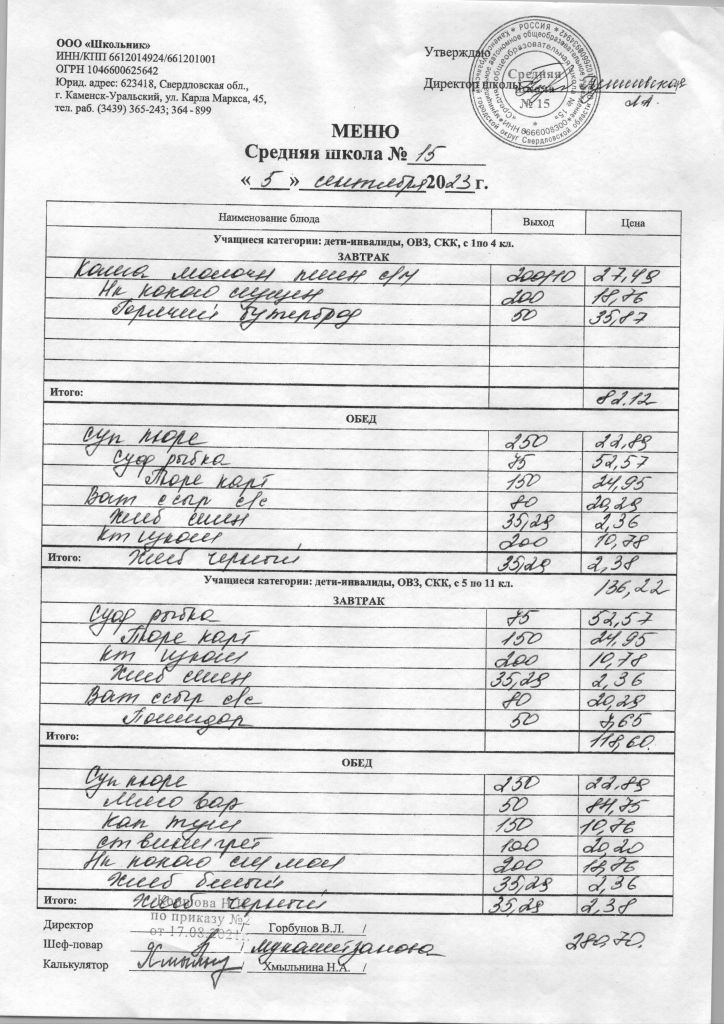 ООО «Школьник»
ИНН/КПП 6612014924/661201001
ОГРН 1046600625642
Юрид. адрес: 623418, Свердловская обл.,
г. Каменск-Уральский, ул. Карла Маркса, 45,
тел. раб. (3439) 365-243; 364 - 899
Утверждаю
Директор школы
Средняя
школа
№ 15
МЕНЮ
Средняя школа № 15
« 5 » сентября 2023 г.
Наименование блюда Выход Цена
Учащиеся категории: дети-инвалиды, ОВЗ, СКК, с 1по 4 кл.
ЗАВТРАК
Каша молочн пшен с/м 200/10 27,49
Нк какао сгущен 200 18,76
Горячий бутерброд 50 35,87
Итого: 82.12
ОБЕД
Суп пюре 250 22,89
Суфл рыбка 75 52,57
Пюре карт 150 24,95
Ват с сыр с/с 80 20,29
Хлеб пшен 35,29 2,36
Кт изюм 200 10,78
Итого: Хлеб черный 35,29 2,38
136,22
Учащиеся категории: дети-инвалиды, ОВЗ, СКК, с 5 по 11 кл.
ЗАВТРАК
Суфл рыбка 75 52,57
Пюре карт 150 24,95
Кт изюм 200 10,78
Хлеб пшен 35,29 2,36
Ват с сыр с/с 80 20,29
Помидор 50 7,65
Итого: 118,60.
ОБЕД
Суп пюре 250 22,89
Мясо вар 50 84,75
Кап туш 150 10,76
ст винегрет 100 20,20
Нк какао сгу мол 200 18,76
Хлеб белый 35,29 2,36
Итого: Хлеб черный 35,29 2,38
по приказу №2
от 17.03.2021
Директор / Горбунов В.Л. /
Шеф-повар / Мухаметзянова
280.70.
Калькулятор / Хмыльнина Н.А. /